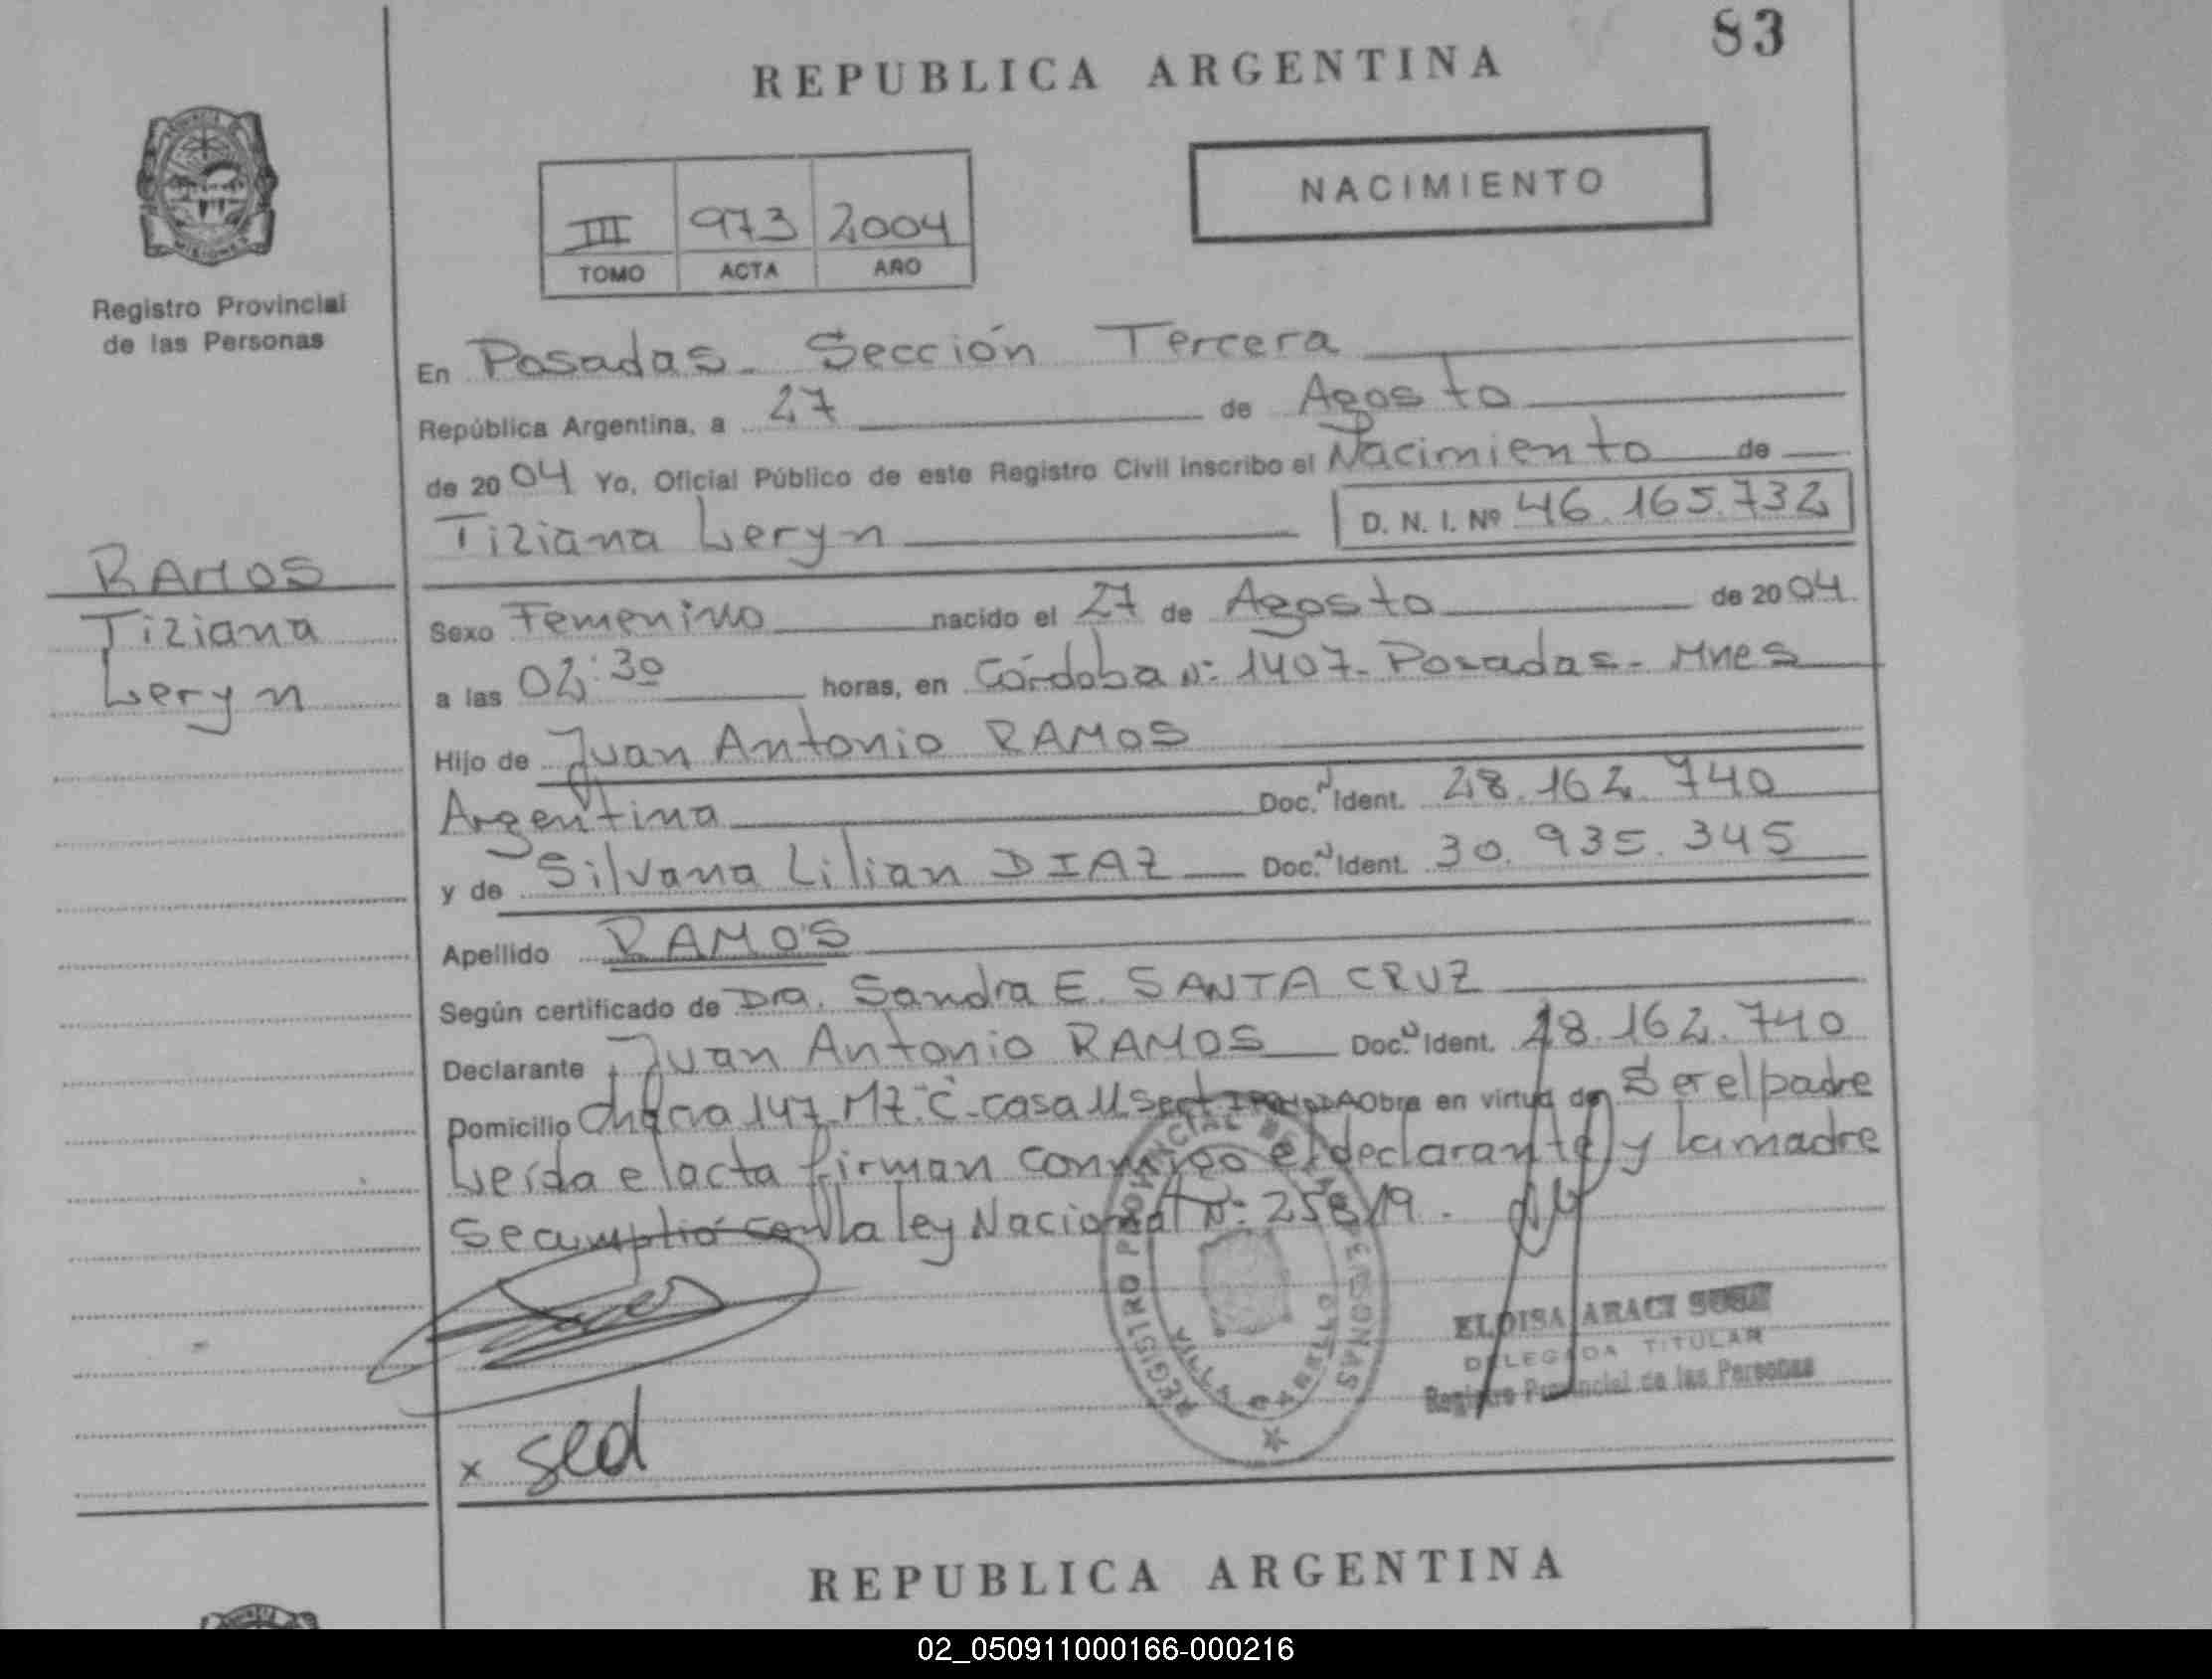 83
REPUBLICA ARGENTINA
NACIMIENTO
III 973 2004
TOMO ACTA AÑO
Registro Provincial
de las Personas
En Posadas - Sección Tercera
República Argentina, a 27 de Agosto
de 2004 Yo, Oficial Público de este Registro Civil inscribo el Nacimiento de
Tiziana Leryn D. N. I. Nº 46.165.732
RAMOS
Tiziana
Leryn
Sexo Femenino nacido el 27 de Agosto de 2004
a las 02:30 horas, en Córdoba Nº 1407 - Posadas - Mnes
Hijo de Juan Antonio RAMOS
Argentina Doc. N Ident. 28.162.740
y de Silvana Lilian DIAZ Doc. N Ident. 30.935.345
Apellido RAMOS
Según certificado de Dra. Sandra E. SANTA CRUZ
Declarante Juan Antonio RAMOS Doc. N Ident. 28.162.740
Domicilio Chacra 147 - MZ. C - casa 11 Obra en virtud de Ser el padre
Leída el acta firman conmigo el declarante y la madre
Se cumplió con la ley Nacional Nº 25819.
REGISTRO PROVINCIAL DE LAS PERSONAS
VILLA CABELLO
ELOISA ARACI
DELEGADA TITULAR
Registro Provincial de las Personas
x
REPUBLICA ARGENTINA
02_050911000166-000216